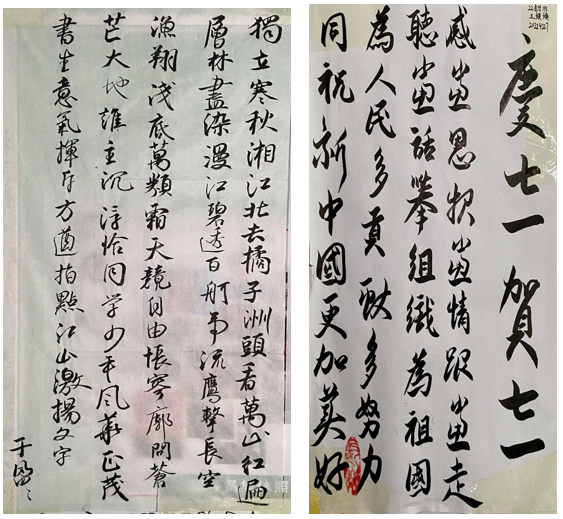 獨立寒秋湘江北去橘子洲頭看萬山紅遍
層林盡染漫江碧透百舸爭流鷹擊長空
漁翔淺底萬類霜天競自由悵寥廓問蒼
茫大地誰主沉浮恰同学少年風華正茂
書生意氣揮斥方遒指點江山激揚文字
慶七一賀七一
感黨恩报黨情跟黨走
聽黨話舉組織為祖國
為人民多貢献多努力
同祝新中國更加美好